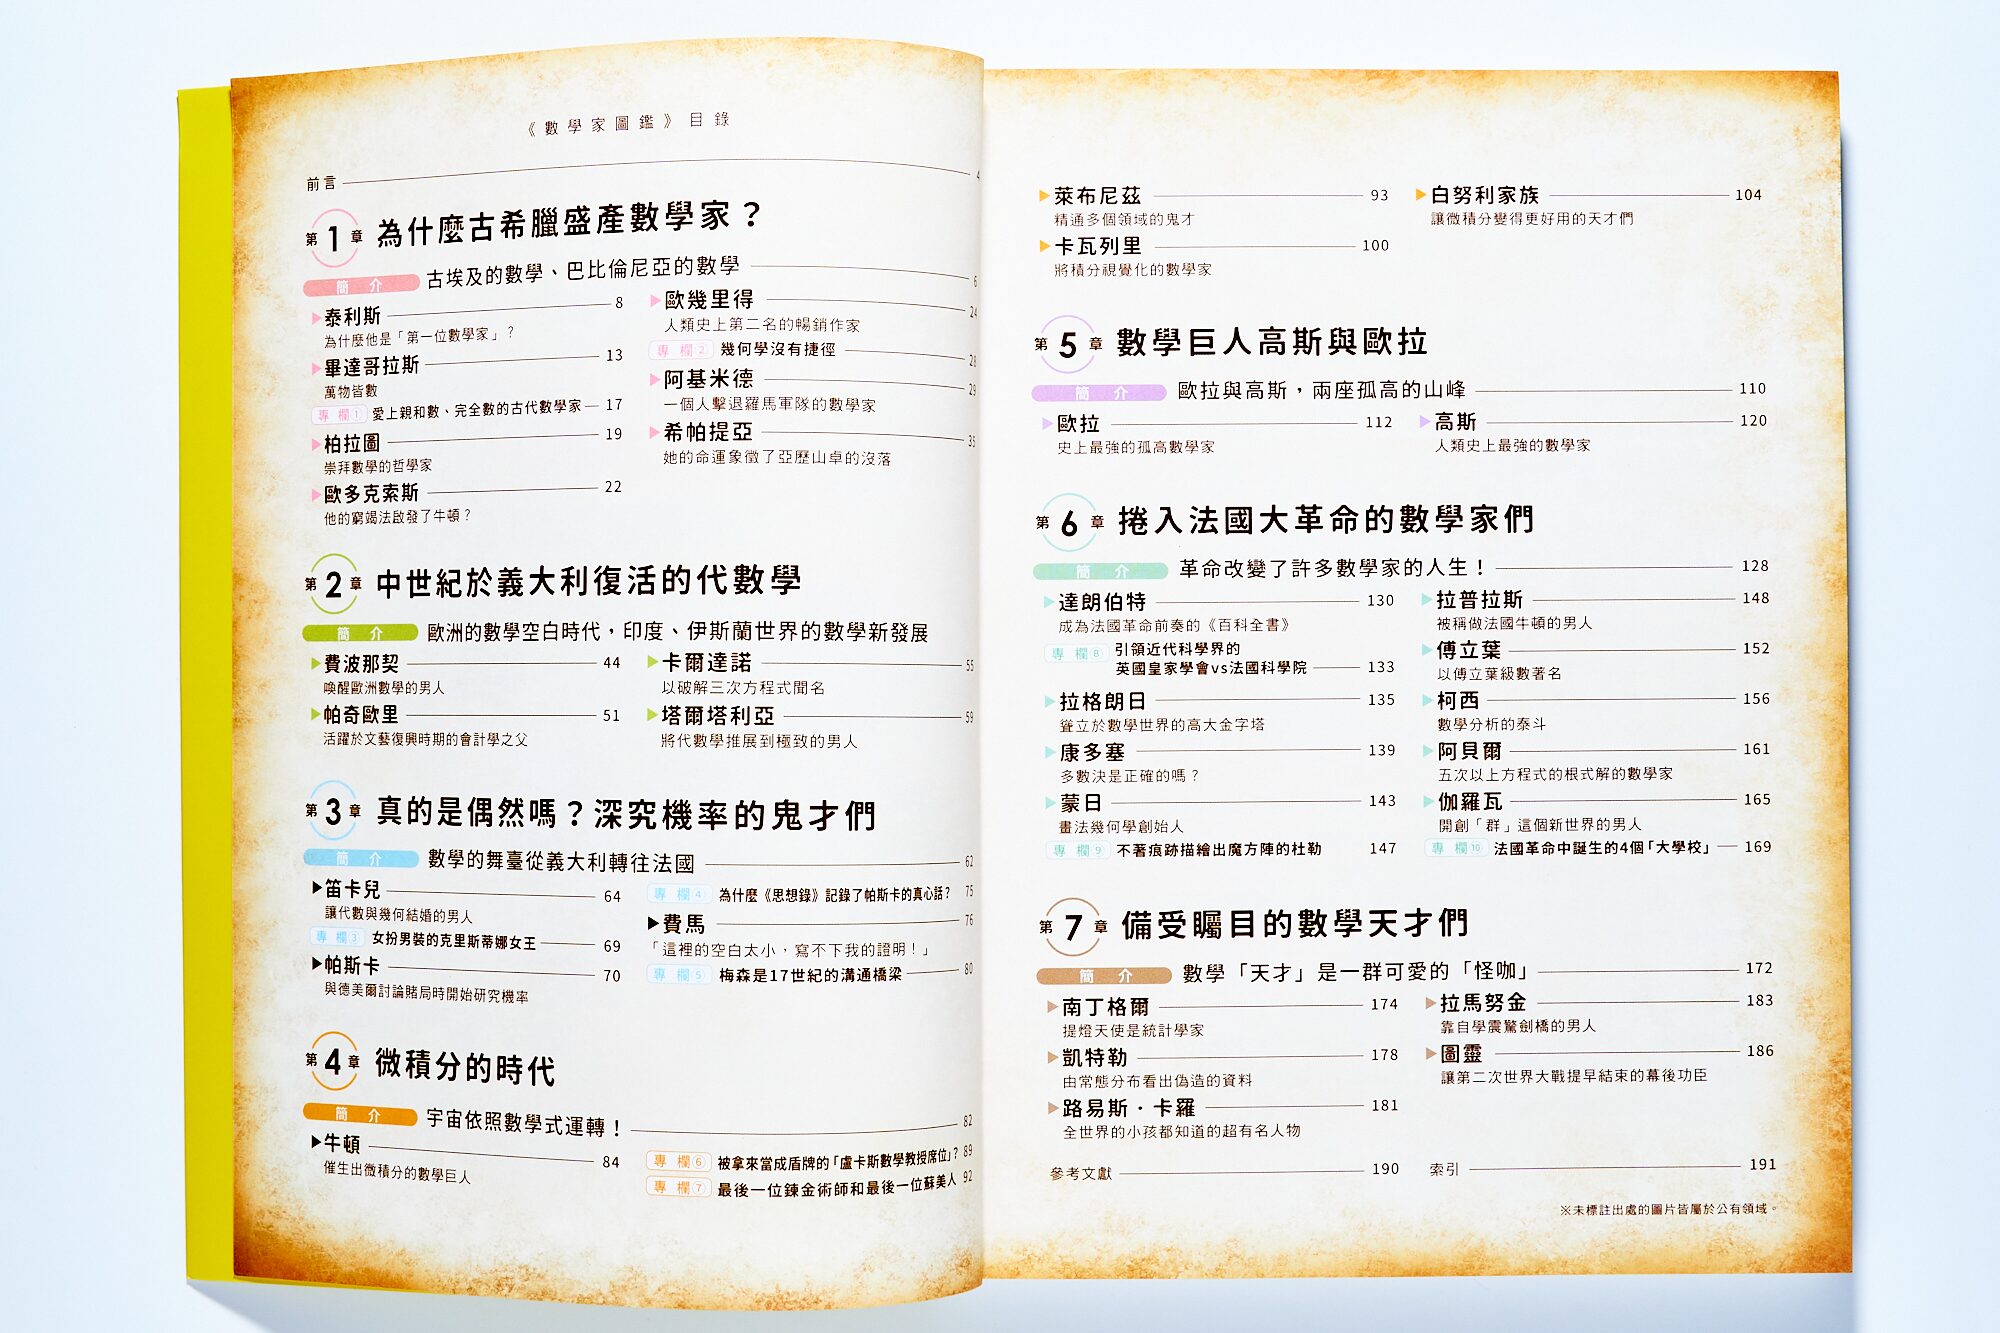 《數學家圖鑑》目錄
前言 4
第1章 為什麼古希臘盛產數學家？
簡介 古埃及的數學、巴比倫尼亞的數學 6
泰利斯 8
為什麼他是「第一位數學家」？
畢達哥拉斯 13
萬物皆數
專欄① 愛上親和數、完全數的古代數學家 17
柏拉圖 19
崇拜數學的哲學家
歐多克索斯 22
他的窮竭法啟發了牛頓？
歐幾里得 24
人類史上第二名的暢銷作家
專欄② 幾何學沒有捷徑 28
阿基米德 29
一個人擊退羅馬軍隊的數學家
希帕提亞 35
她的命運象徵了亞歷山卓的沒落
第2章 中世紀於義大利復活的代數學
簡介 歐洲的數學空白時代，印度、伊斯蘭世界的數學新發展
費波那契 44
喚醒歐洲數學的男人
帕奇歐里 51
活躍於文藝復興時期的會計學之父
卡爾達諾 55
以破解三次方程式聞名
塔爾塔利亞 59
將代數學推展到極致的男人
第3章 真的是偶然嗎？深究機率的鬼才們
簡介 數學的舞臺從義大利轉往法國 62
笛卡兒 64
讓代數與幾何結婚的男人
專欄③ 女扮男裝的克里斯蒂娜女王 69
帕斯卡 70
與德美爾討論賭局時開始研究機率
專欄④ 為什麼《思想錄》記錄了帕斯卡的真心話？ 75
費馬 76
「這裡的空白太小，寫不下我的證明！」
專欄⑤ 梅森是17世紀的溝通橋梁 80
第4章 微積分的時代
簡介 宇宙依照數學式運轉！ 82
牛頓 84
催生出微積分的數學巨人
專欄⑥ 被拿來當成盾牌的「盧卡斯數學教授席位」？ 89
專欄⑦ 最後一位鍊金術師和最後一位蘇美人 92
萊布尼茲 93
精通多個領域的鬼才
卡瓦列里 100
將積分視覺化的數學家
白努利家族 104
讓微積分變得更好用的天才們
第5章 數學巨人高斯與歐拉
簡介 歐拉與高斯，兩座孤高的山峰 110
歐拉 112
史上最強的孤高數學家
高斯 120
人類史上最強的數學家
第6章 捲入法國大革命的數學家們
簡介 革命改變了許多數學家的人生！ 128
達朗伯特 130
成為法國革命前奏的《百科全書》
專欄⑧ 引領近代科學界的
英國皇家學會vs法國科學院 133
拉格朗日 135
聳立於數學世界的高大金字塔
康多塞 139
多數決是正確的嗎？
蒙日 143
畫法幾何學創始人
專欄⑨ 不著痕跡描繪出魔方陣的杜勒 147
拉普拉斯 148
被稱做法國牛頓的男人
傅立葉 152
以傅立葉級數著名
柯西 156
數學分析的泰斗
阿貝爾 161
五次以上方程式的根式解的數學家
伽羅瓦 165
開創「群」這個新世界的男人
專欄⑩ 法國革命中誕生的4個「大學校」 169
第7章 備受矚目的數學天才們
簡介 數學「天才」是一群可愛的「怪咖」 172
南丁格爾 174
提燈天使是統計學家
凱特勒 178
由常態分布看出偽造的資料
路易斯·卡羅 181
全世界的小孩都知道的超有名人物
拉馬努金 183
靠自學震驚劍橋的男人
圖靈 186
讓第二次世界大戰提早結束的幕後功臣
參考文獻 190
索引 191
※未標註出處的圖片皆屬於公有領域。